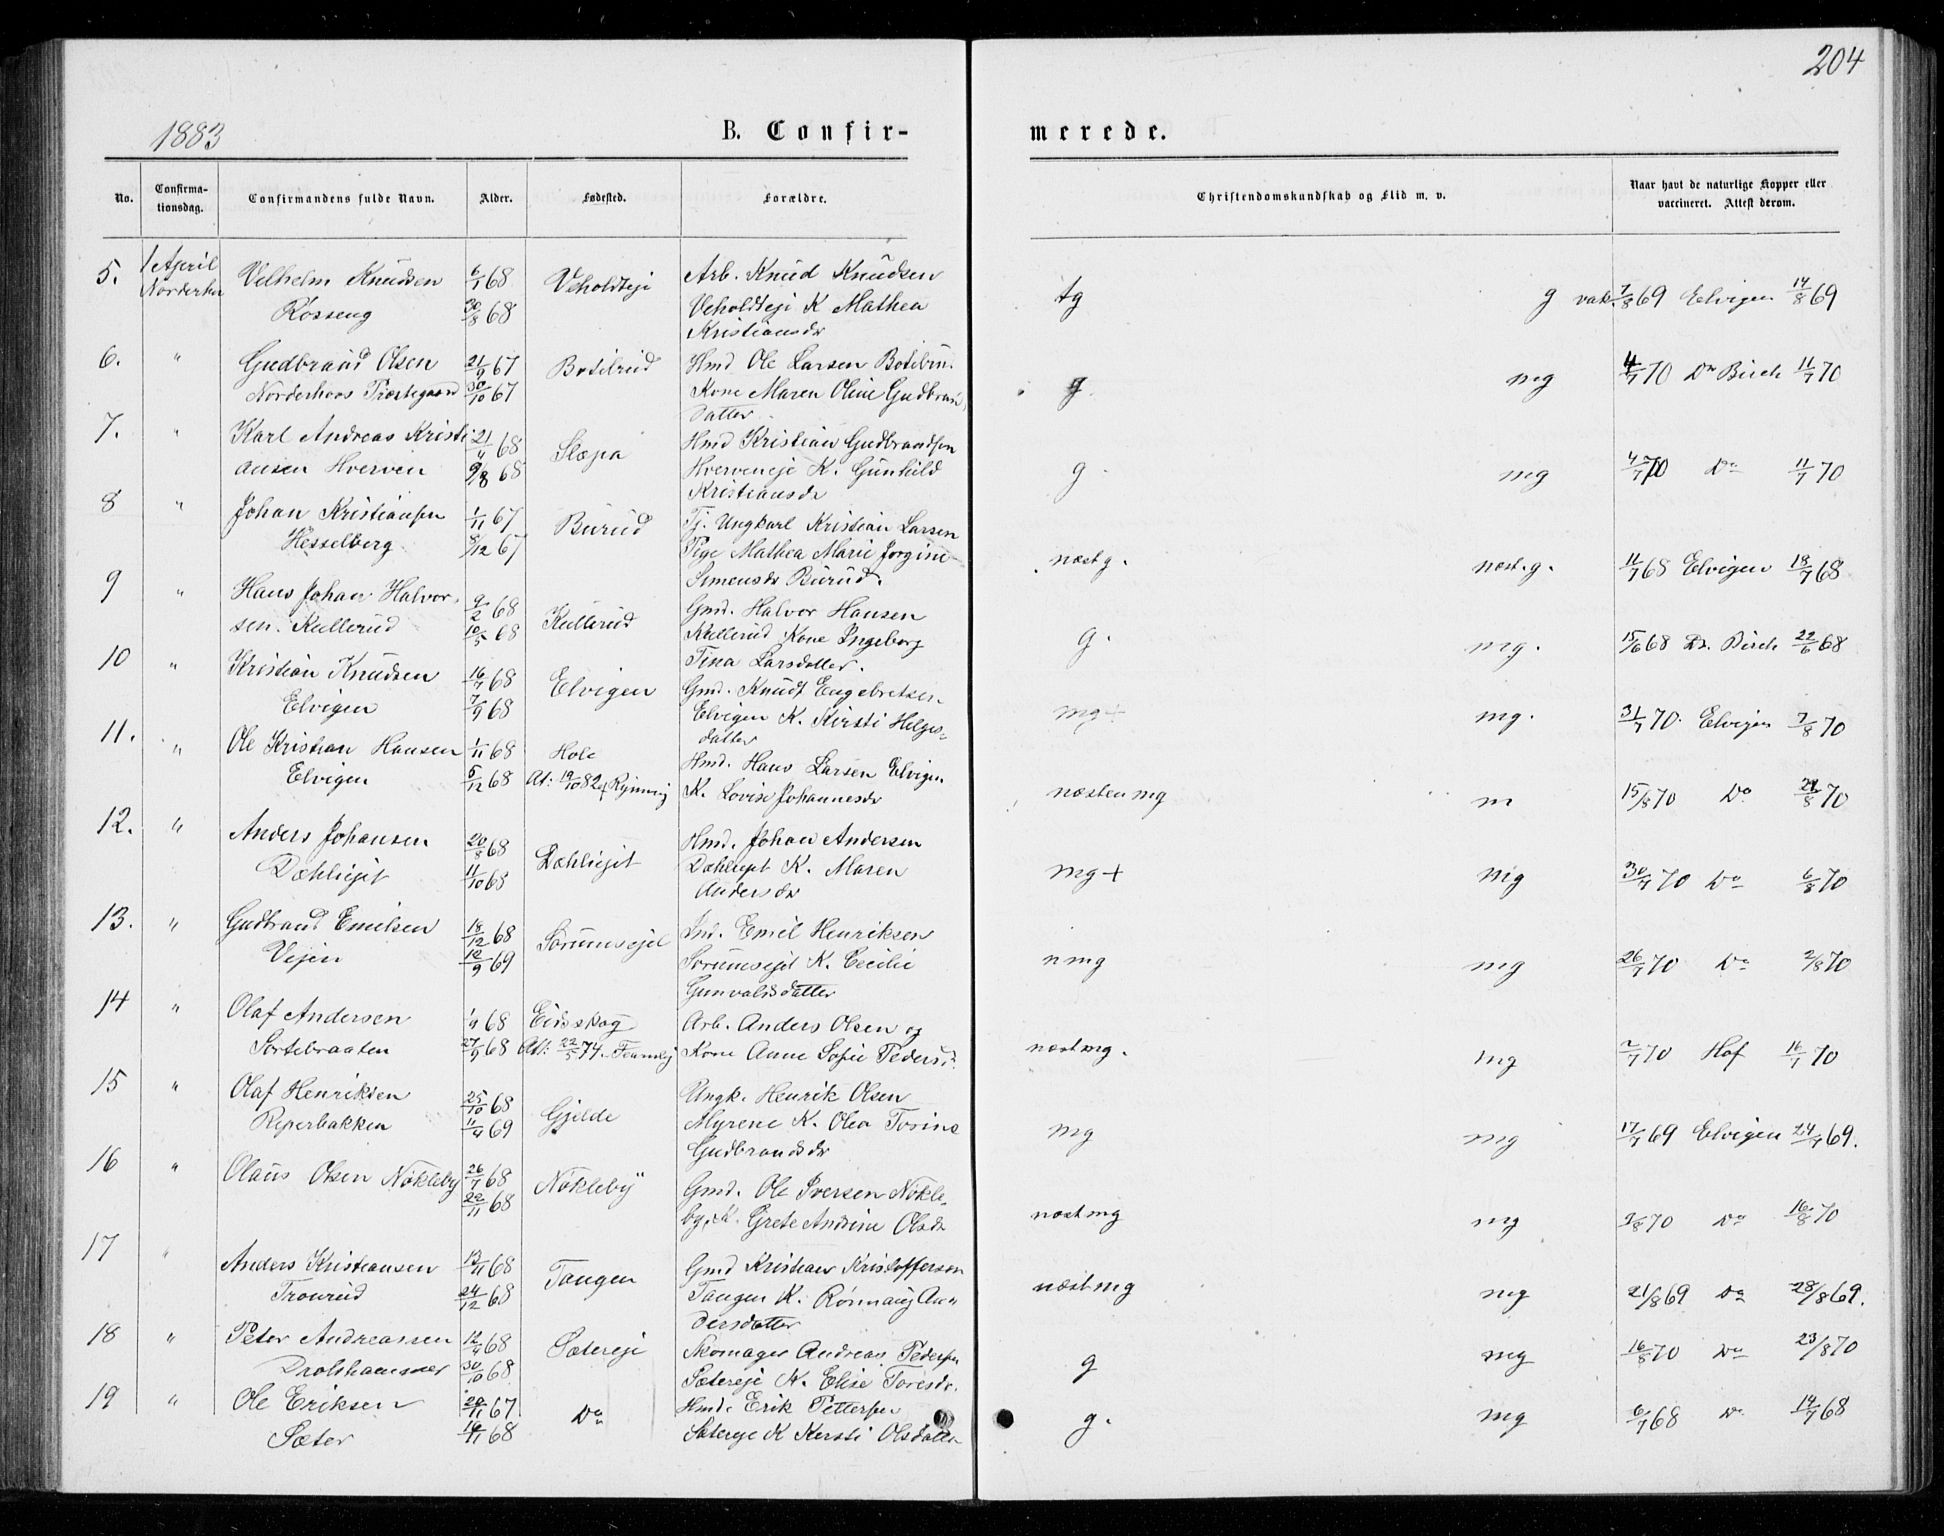 204
1883
B. Confir-
merede.
No.
Confirma-
tionsdag.
Confirmandens fulde Navn.
Alder.
Fødested.
Forældre.
Christendomskundskab og Flid m. v.
Naar havt de naturlige Kopper eller
vaccineret. Attest derom.
5. 1 April Velhelm Knudsen 6/1 68 Veholdteje Arb. Knud Knudsen tg g vak. 7/8 69 Elvigen 14/8 69
Norderhov Rösseng 30/8 68 Veholdteje K Mathea
Kristiansdr
6. " Gudbrand Olsen 21/9 67 Botilrud Hmd Ole Larsen Botilrud g mg 4/7 70 Dr Birch 11/7 70
Norderhovs Præstegaard 30/10 67 Kone Maren Oline Gudbran
datter
7. " Karl Andreas Kristi 21/4 68 Slæpa Hmd Kristian Gudbrandsen g mg 4/7 70 Do 11/7 70
ansen Hverven 9/8 68 Hverveneje K. Gunhild
Kristiansdr
8 " Johan Kristiansen 1/11 67 Burud Tj. Ungkarl Kristian Larsen næst g. næst. g. 11/7 68 Elvigen 18/7 68
Hesselberg 8/12 67 Pige Mathea Marie Jorgine
Simensdr Burud.
9 " Hans Johan Halvor. 9/2 68 Kullerud Gmd. Halvor Hansen g. mg. 15/6 68 Dr. Birch 22/6 68
sen. Kullerud 10/5 68 Kullerud Kone Ingeborg
Tina Larsdatter.
10 " Kristian Knudsen 16/7 68 Elvigen Gmd. Knudt Engebretsen mg+ mg. 31/7 70. Elvigen 7/8 70
Elvigen 7/9 68 Elvigen K. Kirsti Helges-
datter
11. " Ole Kristian Hansen 1/11 68 Hole Hmd. Hans Larsen Elvigen næsten mg m 15/8 70 Do 21/8 70
Elvigen 6/12 68 At: 19/10 82 K. Lovise Johannesdr
12. " Anders Johansen 20/8 68 Dæhliejet Hmd. Johan Andersen mg+ mg 30/7 70 Do 6/8 70
Dæhliejet 11/10 68 Dæhliejet K. Maren
Andersdr
13. " Gudbrand Emilsen 18/12 68 Sørumsejet Ind. Emil Henriksen n mg mg 26/7 70 Do 2/8 70
Vejen 12/9 69 Sorumsejet K. Cecilie
Gunvaldsdatter
14 " Olaf Andersen 1/9 68 Eidsskog Arb. Anders Olsen og næst mg. mg 2/7 70 Hof 16/7 70
Sortebraaten 27/9 68 At: 22/5 74. Kone Anne Sofie Pedersd.
15 " Olaf Henriksen 25/10 68 Gjelde Ungk. Henrik Olsen mg mg 17/7 69 Elvigen 24/7 69.
Reperbakken 11/4 69 Myrene K. Olea Torine
Gudbrandsdr
16 " Olaus Olsen Nökleby 26/7 68 Nökleby Gmd. Ole Iversen Nökle- næst mg mg 9/8 70 Do 16/8 70
22/11 68 by, K. Grete Andrine Olsdr
17 " Anders Kristiansen 13/11 68 Tangen Gmd Kristian Kristofferson næst mg mg 21/8 69 Do 28/8 69.
Tronrud 24/12 68 Tangen K. Rönnaug An-
dersdatter
18 " Peter Andreassen 12/9 68 Sætereje Skomager Andreas Pedersen g mg 16/8 70 Do 23/8 70
Drolshammer 30/10 68 Sætereje K. Elise Toresdr.
19 " Ole Eriksen 29/11 67 Do Hmd. Erik Pettersen g. mg 6/7 68 Do 14/7 68
Sæter 19/1 68 Sætereje K Kersti Olsdatter